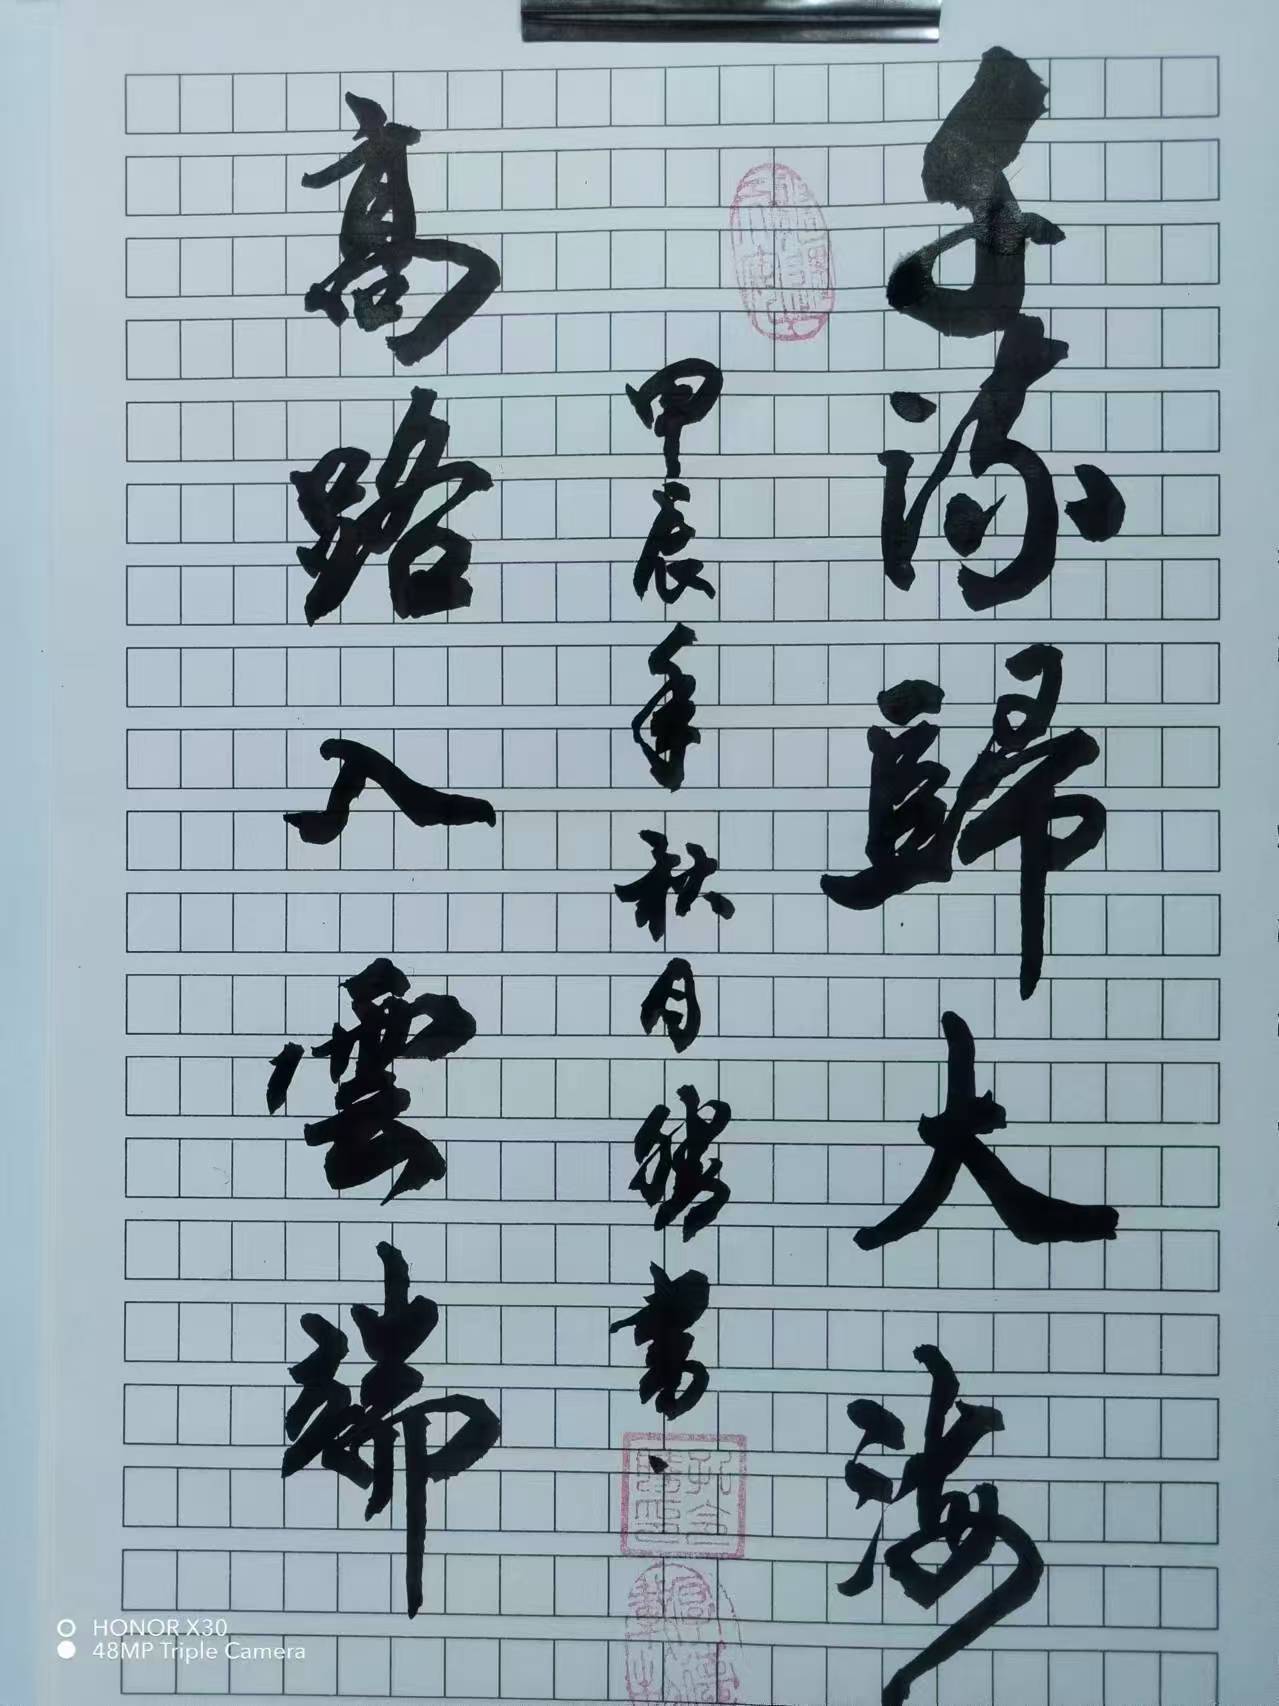 千流歸大海
甲辰年秋月
書
高路入雲端
HONOR X30
48MP Triple Camera